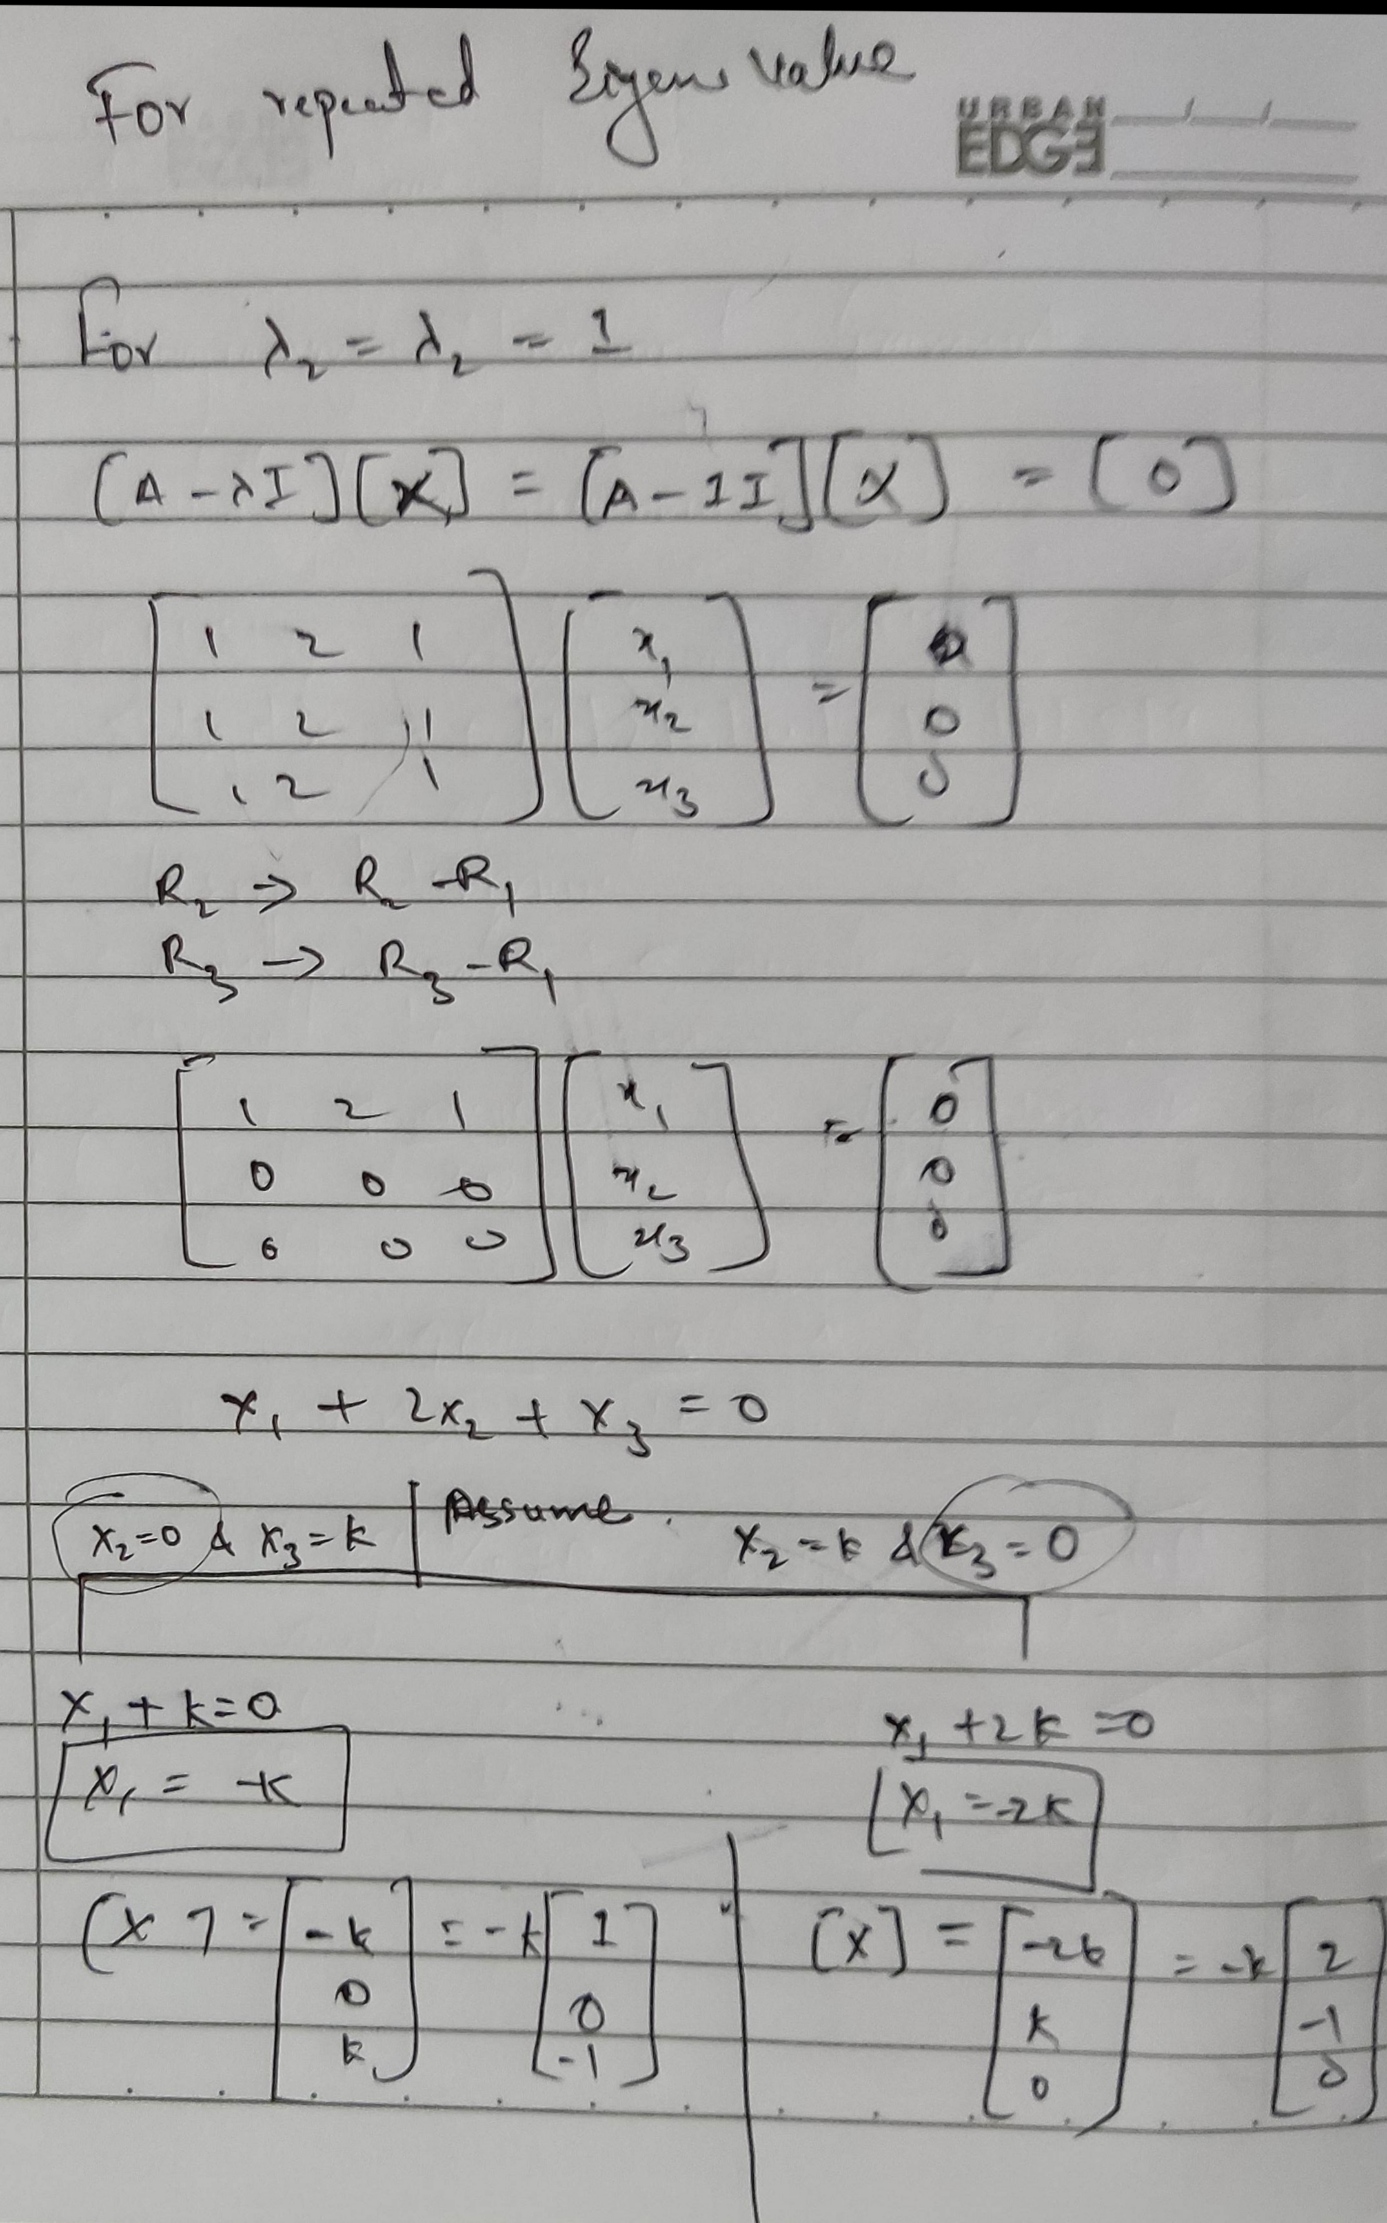 For repeated Eigen value
URBAN
EDGE
For λ₂ = λ₂ = 1
[A - λI][X] = [A - 1I][X] = [0]
[1 2 1] [x₁] = [0]
[1 2 1] [x₂] [0]
[1 2 1] [x₃] [0]
R₂ → R₂ - R₁
R₃ → R₃ - R₁
[1 2 1] [x₁] = [0]
[0 0 0] [x₂] [0]
[0 0 0] [x₃] [0]
x₁ + 2x₂ + x₃ = 0
x₂=0 & x₃=k | Assume. x₂=k & x₃=0
x₁ + k=0 x₁ +2k =0
x₁ = -k x₁ =-2k
[X] = [-k] = -k [1] [X] = [-2k] = -k [2]
[0] [0] [k] [-1]
[k] [-1] [0] [0]